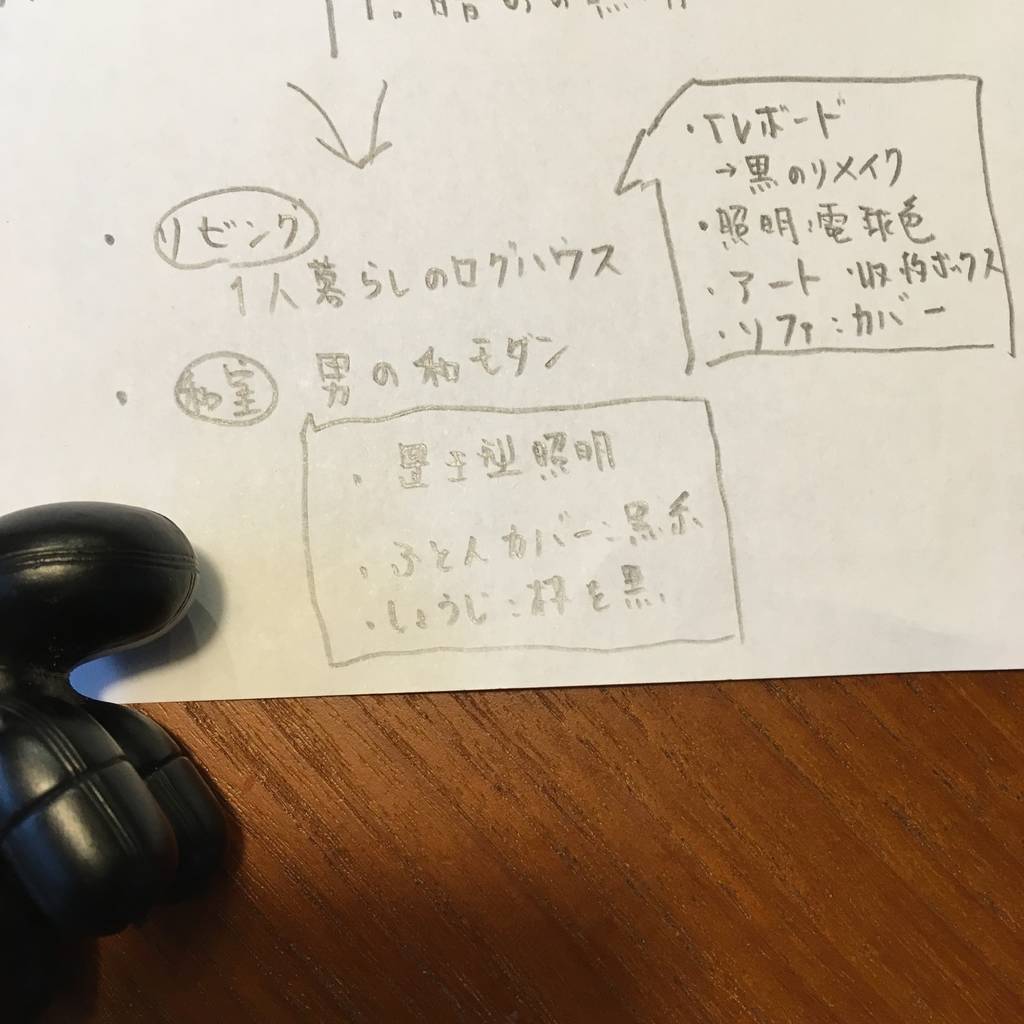 ・リビング
1人暮らしのログハウス
・TVボード
→黒のリメイク
・照明:電球色
・アート・収納ボックス
・ソファ:カバー
・和室 男の和モダン
・置き型照明
・ふとんカバー:黒系
・しょうじ:枠を黒.